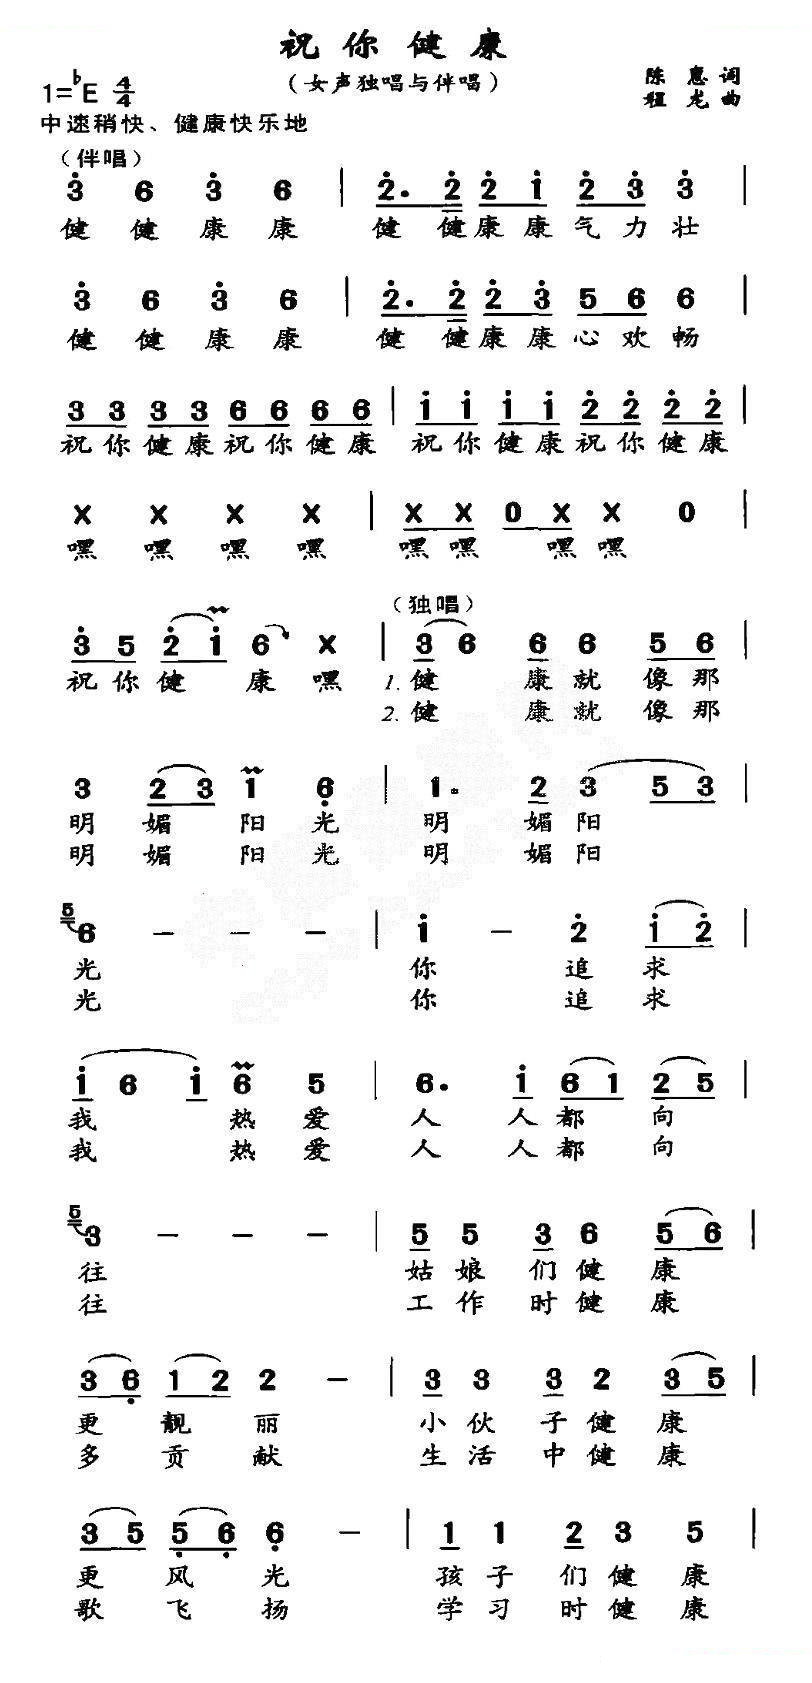 祝你健康
（女声独唱与伴唱）
陈惠词
程龙曲
1=♭E 4/4
中速稍快、健康快乐地
（伴唱）
3 6 3 6 | 2. 2 2 1 2 3 3 |
健 健 康 康 健 健康 康 气 力 壮
3 6 3 6 | 2. 2 2 3 5 6 6 |
健 健 康 康 健 健康 康 心 欢 畅
3 3 3 3 6 6 6 6 | 1 1 1 1 2 2 2 2 |
祝 你 健 康 祝 你 健 康 祝 你 健 康 祝 你 健 康
X X X X | X X 0 X X 0 |
嘿 嘿 嘿 嘿 嘿 嘿 嘿 嘿
（独唱）
3 5 2 1 6 X | 3 6 6 6 5 6 |
祝 你 健 康 嘿 1. 健 康 就 像 那
2. 健 康 就 像 那
3 2 3 1 6 | 1. 2 3 5 3 |
明 媚 阳 光 明 媚 阳
明 媚 阳 光 明 媚 阳
5 6 － － | 1 － 2 1 2 |
光 你 追 求
光 你 追 求
1 6 1 6 5 | 6. 1 6 1 2 5 |
我 热 爱 人 人 都 向
我 热 爱 人 人 都 向
5 3 － － － | 5 5 3 6 5 6 |
往 姑 娘 们 健 康
往 工 作 时 健 康
3 6 1 2 2 － | 3 3 3 2 3 5 |
更 靓 丽 小 伙 子 健 康
多 贡 献 生 活 中 健 康
3 5 5 6 6 － | 1 1 2 3 5 |
更 风 光 孩 子 们 健 康
歌 飞 扬 学 习 时 健 康